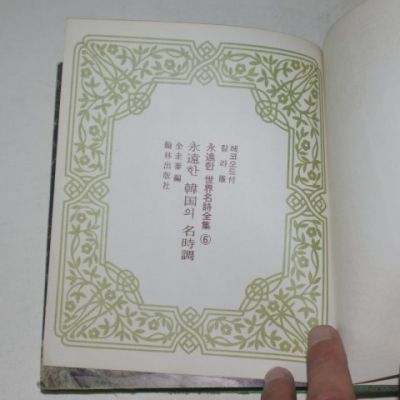 레코오드付
칼라版
永遠한 世界名詩全集 ⑥
永遠한 韓国의 名時調
全圭泰 編
翰林出版社